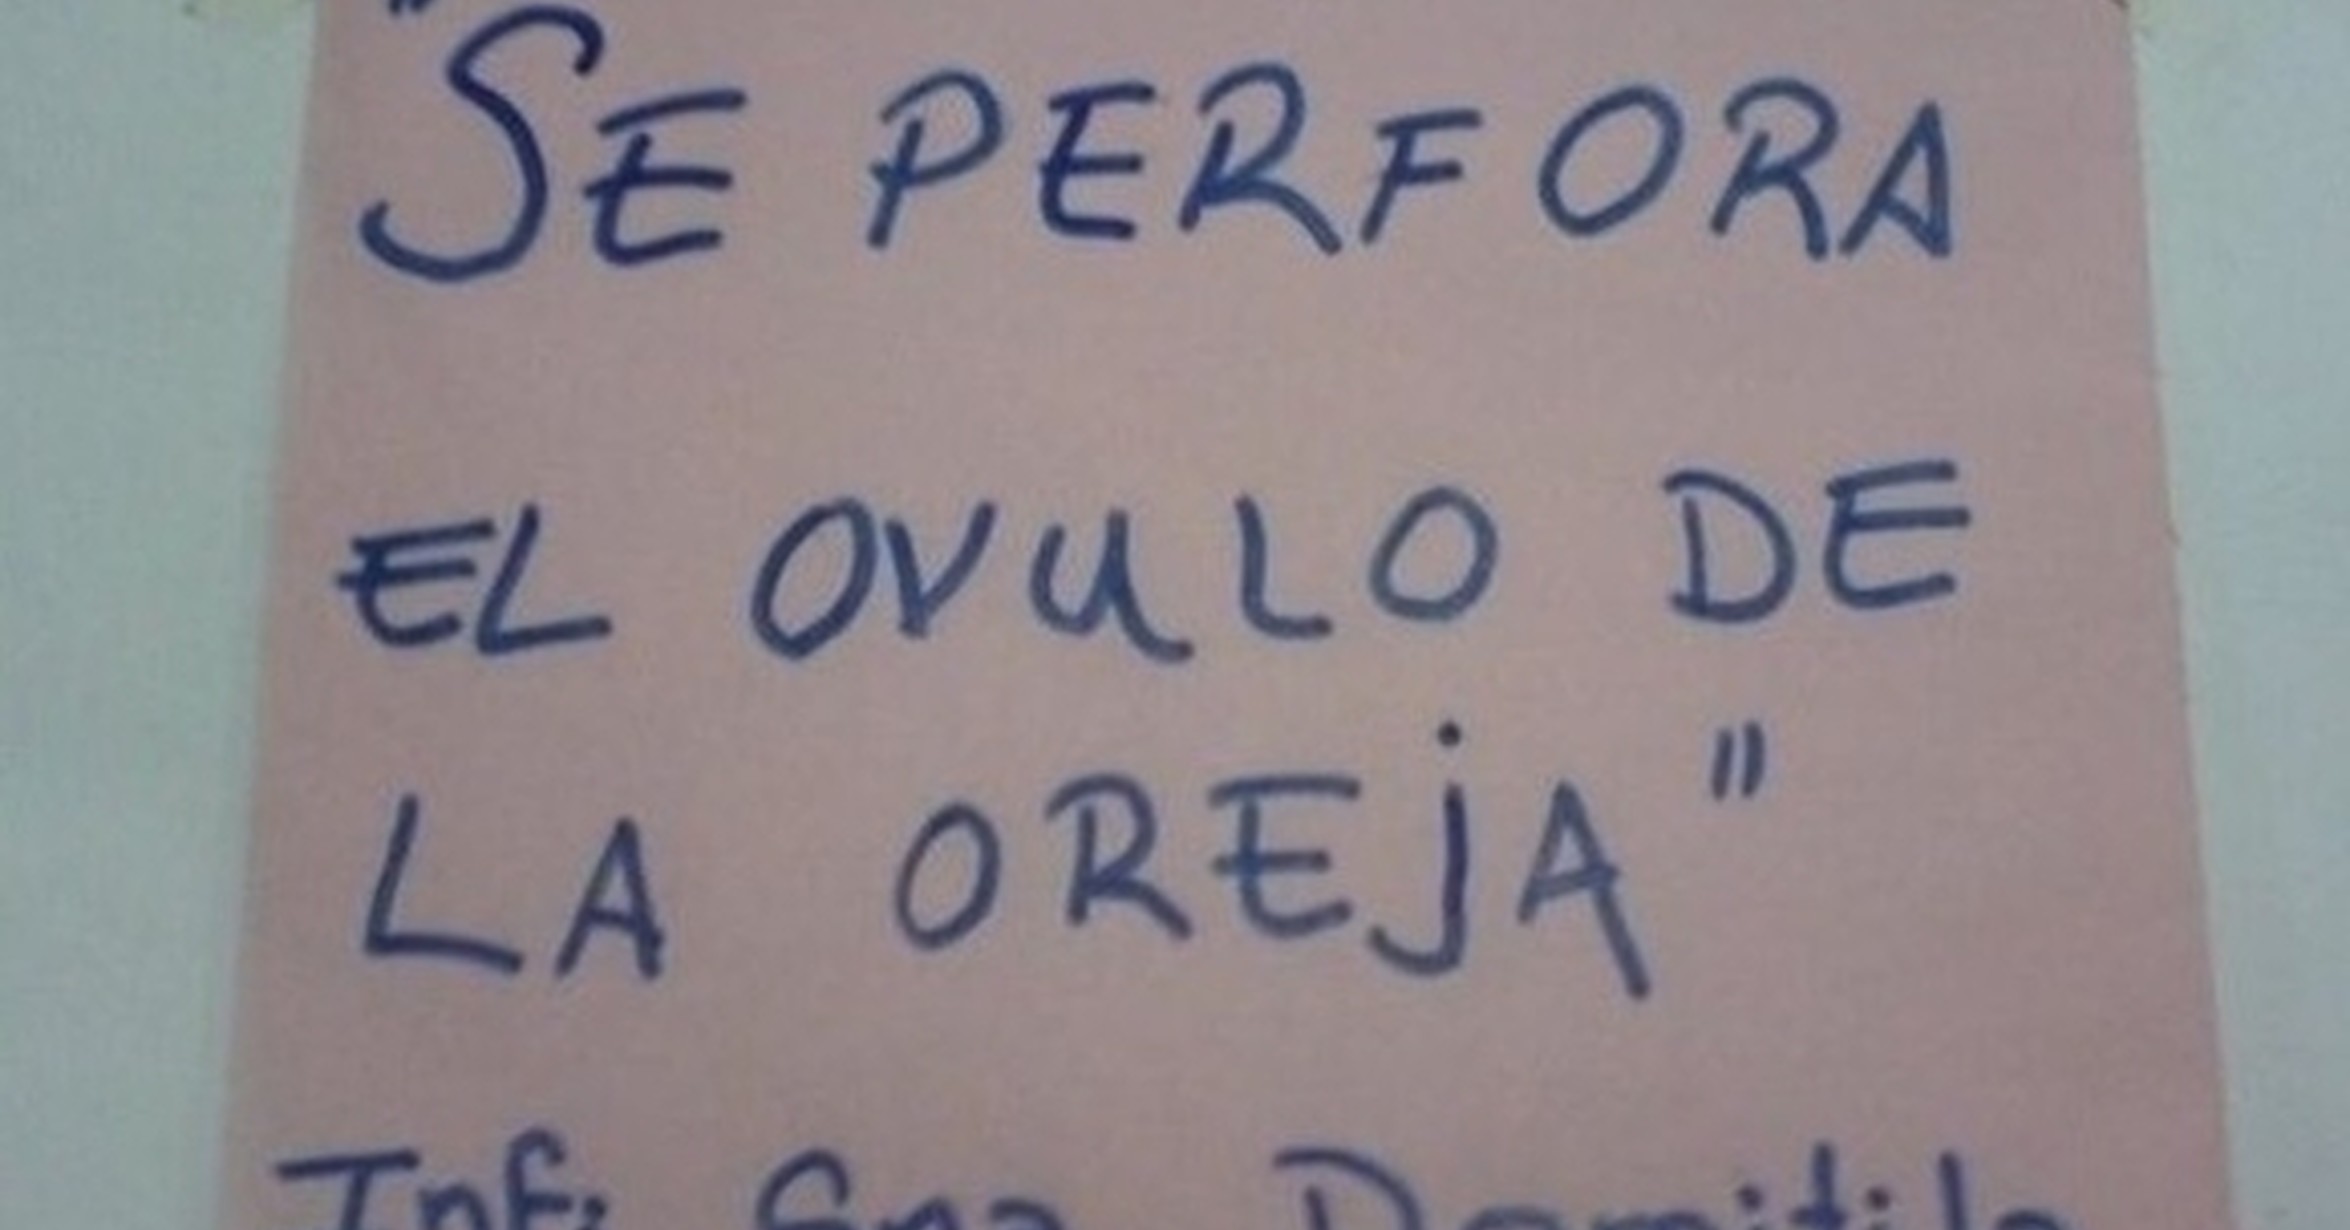 "SE PERFORA
EL OVULO DE
LA OREjA"
Inf: Sra Domitila